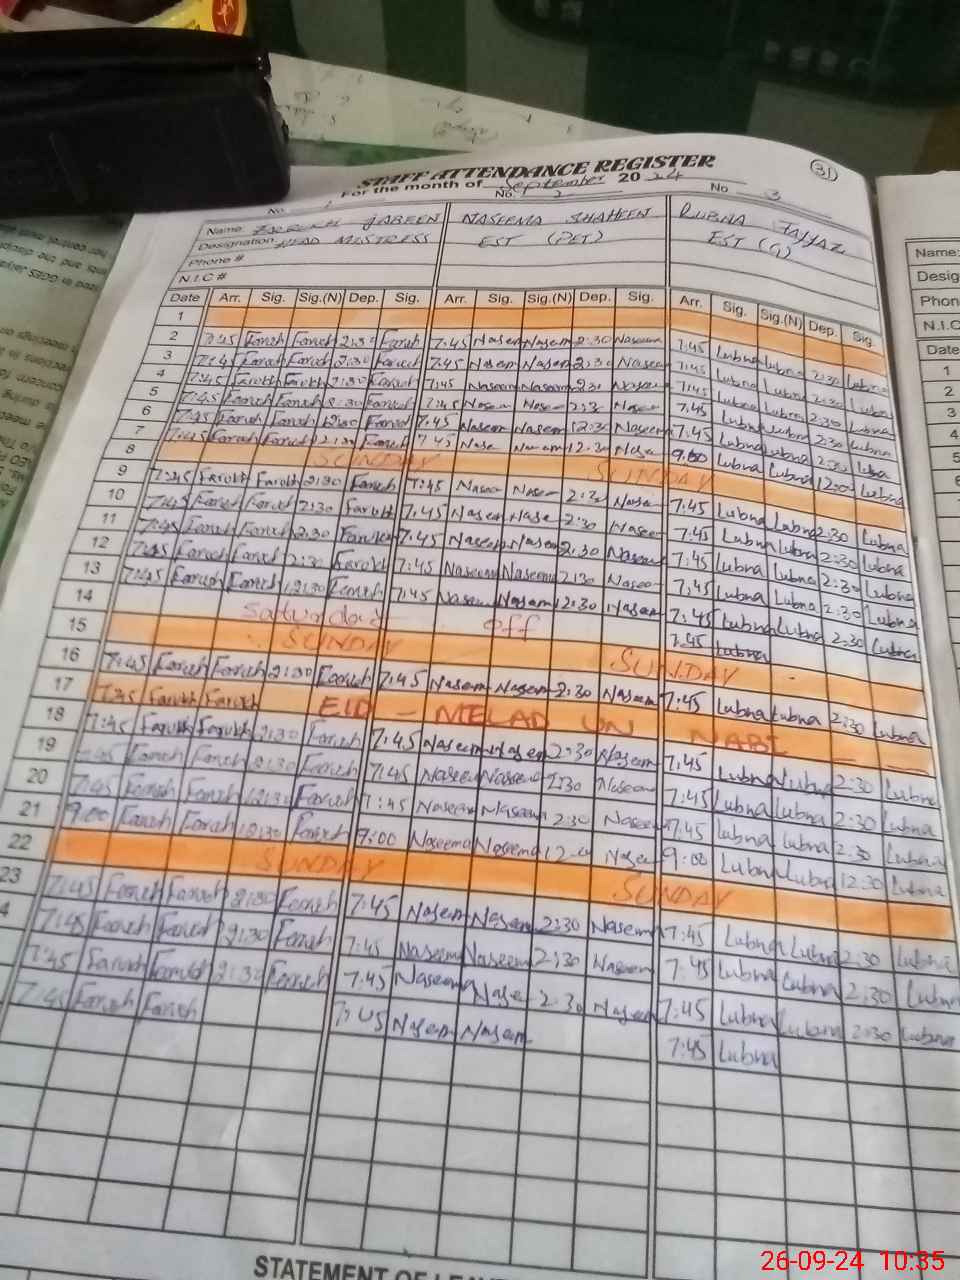 STAFF ATTENDANCE REGISTER
31
For the month of September 20 24
No. 1 No. 2 No 3
Name: JABEEN NASEEMA SHAHEEN RUBNA FAYYAZ
Designation HEAD MISTRESS EST (PET) EST (G)
Phone #
N.I.C #
Date Arr. Sig. Sig.(N) Dep. Sig. Arr. Sig. Sig.(N) Dep. Sig. Arr. Sig. Sig.(N) Dep. Sig.
1
2 7:45 Farukh Farukh 2:30 Farukh 7:45 Naseem Naseem 2:30 Naseem 7:45 Lubna Lubna 2:30 Lubna
3 7:45 Farukh Farukh 2:30 Farukh 7:45 Naseem Naseem 2:30 Naseem 7:45 Lubna Lubna 2:30 Lubna
4 7:45 Farukh Farukh 2:30 Farukh 7:45 Naseem Naseem 2:30 Naseem 7:45 Lubna Lubna 2:30 Lubna
5 7:45 Farukh Farukh 2:30 Farukh 7:45 Nasee Nase 2:30 Nasee 7:45 Lubna Lubna 2:30 Lubna
6 7:45 Farukh Farukh 12:30 Farukh 7:45 Naseem Naseem 12:30 Naseem 7:45 Lubna Lubna 2:30 Lubna
7 7:45 Farukh Farukh 12:30 Farukh 7:45 Nase Naseem 12:30 Nase 9:00 Lubna Lubna 12:00 Lubna
8 SUNDAY SUNDAY
9 7:45 Farukh Farukh 2:30 Farukh 7:45 Nasee Nasee 2:30 Nasee 7:45 Lubna Lubna 2:30 Lubna
10 7:45 Farukh Farukh 2:30 Farukh 7:45 Naseem Nase 2:30 Naseem 7:45 Lubna Lubna 2:30 Lubna
11 7:45 Farukh Farukh 2:30 Farukh 7:45 Naseem Naseem 2:30 Naseem 7:45 Lubna Lubna 2:30 Lubna
12 7:45 Farukh Farukh 2:30 Farukh 7:45 Naseem Naseem 2:30 Naseem 7:45 Lubna Lubna 2:30 Lubna
13 7:45 Farukh Farukh 12:30 Farukh 7:45 Naseem Naseem 12:30 Naseem 7:45 Lubna Lubna 2:30 Lubna
14 Saturday off 7:45 Lubna
15 SUNDAY SUNDAY
16 7:45 Farukh Farukh 2:30 Farukh 7:45 Naseem Naseem 2:30 Naseem 7:45 Lubna Lubna 2:30 Lubna
17 7:45 Farukh Farukh EID - MELAD UN NABI
18 7:45 Farukh Farukh 2:30 Farukh 7:45 Naseem Naseem 2:30 Naseem 7:45 Lubna Lubna 2:30 Lubna
19 7:45 Farukh Farukh 2:30 Farukh 7:45 Naseem Naseem 2:30 Naseem 7:45 Lubna Lubna 2:30 Lubna
20 7:45 Farukh Farukh 12:30 Farukh 7:45 Naseem Naseem 2:30 Naseem 7:45 Lubna Lubna 2:30 Lubna
21 9:00 Farukh Farukh 12:30 Farukh 9:00 Naseema Naseema Nasee 9:00 Lubna Lubna 12:30 Lubna
22 SUNDAY SUNDAY
23 7:45 Farukh Farukh 2:30 Farukh 7:45 Naseem Naseem 2:30 Naseem 7:45 Lubna Lubna 2:30 Lubna
4 7:45 Farukh Farukh 2:30 Farukh 7:45 Naseem Naseem 2:30 Naseem 7:45 Lubna Lubna 2:30 Lubna
7:45 Farukh Farukh 2:30 Farukh 7:45 Naseema Nase 2:30 Naseem 7:45 Lubna Lubna 2:30 Lubna
7:45 Farukh Farukh 7:45 Naseem Naseem 7:45 Lubna
STATEMENT OF LEAV
Name:
Desig
Phon
N.I.C
Date
1
2
3
4
5
6
26-09-24 10:35